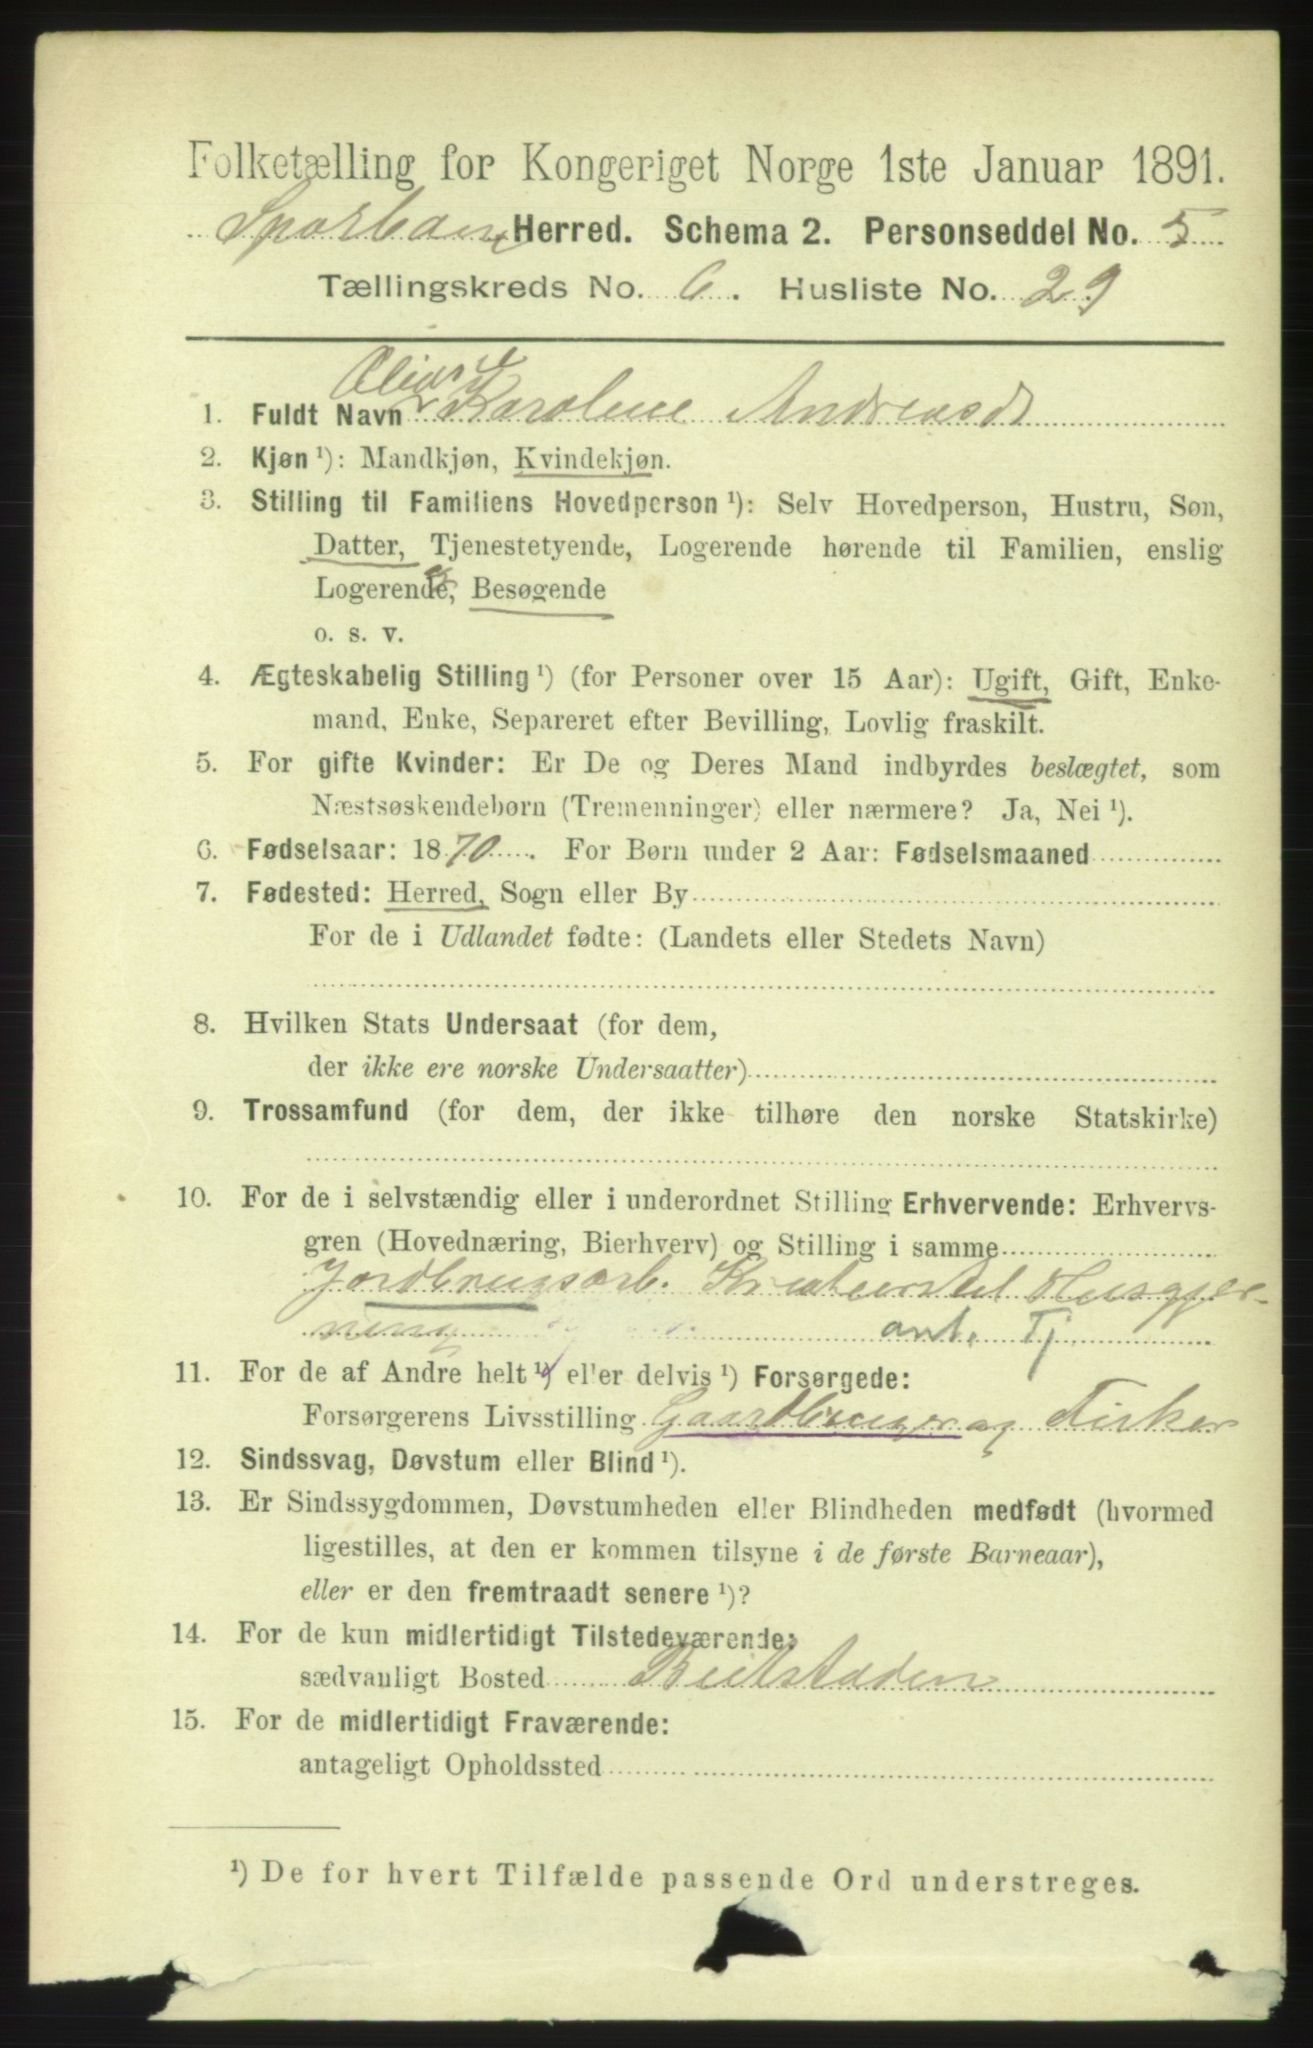 Folketælling for Kongeriget Norge 1ste Januar 1891.
Sparbuen Herred. Schema 2. Personseddel No. 5
Tællingskreds No. 6. Husliste No. 29
1. Fuldt Navn Karoline Andreasdt
2. Kjøn ¹): Mandkjøn, Kvindekjøn.
3. Stilling til Familiens Hovedperson ¹): Selv Hovedperson, Hustru, Søn,
Datter, Tjenestetyende, Logerende hørende til Familien, enslig
Logerende, Besøgende
o. s. v.
4. Ægteskabelig Stilling ¹) (for Personer over 15 Aar): Ugift, Gift, Enke-
mand, Enke, Separeret efter Bevilling, Lovlig fraskilt.
5. For gifte Kvinder: Er De og Deres Mand indbyrdes beslægtet, som
Næstsøskendebørn (Tremenninger) eller nærmere? Ja, Nei ¹).
6. Fødselsaar: 1870. For Børn under 2 Aar: Fødselsmaaned
7. Fødested: Herred, Sogn eller By
For de i Udlandet fødte: (Landets eller Stedets Navn)
8. Hvilken Stats Undersaat (for dem,
der ikke ere norske Undersaatter)
9. Trossamfund (for dem, der ikke tilhøre den norske Statskirke)
10. For de i selvstændig eller i underordnet Stilling Erhvervende: Erhvervs-
gren (Hovednæring, Bierhverv) og Stilling i samme
Jordbrugsarb. Kreaturstel Husgjer-
ning ant. Tj.
11. For de af Andre helt ¹) eller delvis ¹) Forsørgede:
Forsørgerens Livsstilling Gaardbruger og Fisker
12. Sindssvag, Døvstum eller Blind ¹).
13. Er Sindssygdommen, Døvstumheden eller Blindheden medfødt (hvormed
ligestilles, at den er kommen tilsyne i de første Barneaar),
eller er den fremtraadt senere ¹)?
14. For de kun midlertidigt Tilstedeværende:
sædvanligt Bosted Beitstaden
15. For de midlertidigt Fraværende:
antageligt Opholdssted
¹) De for hvert Tilfælde passende Ord understreges.